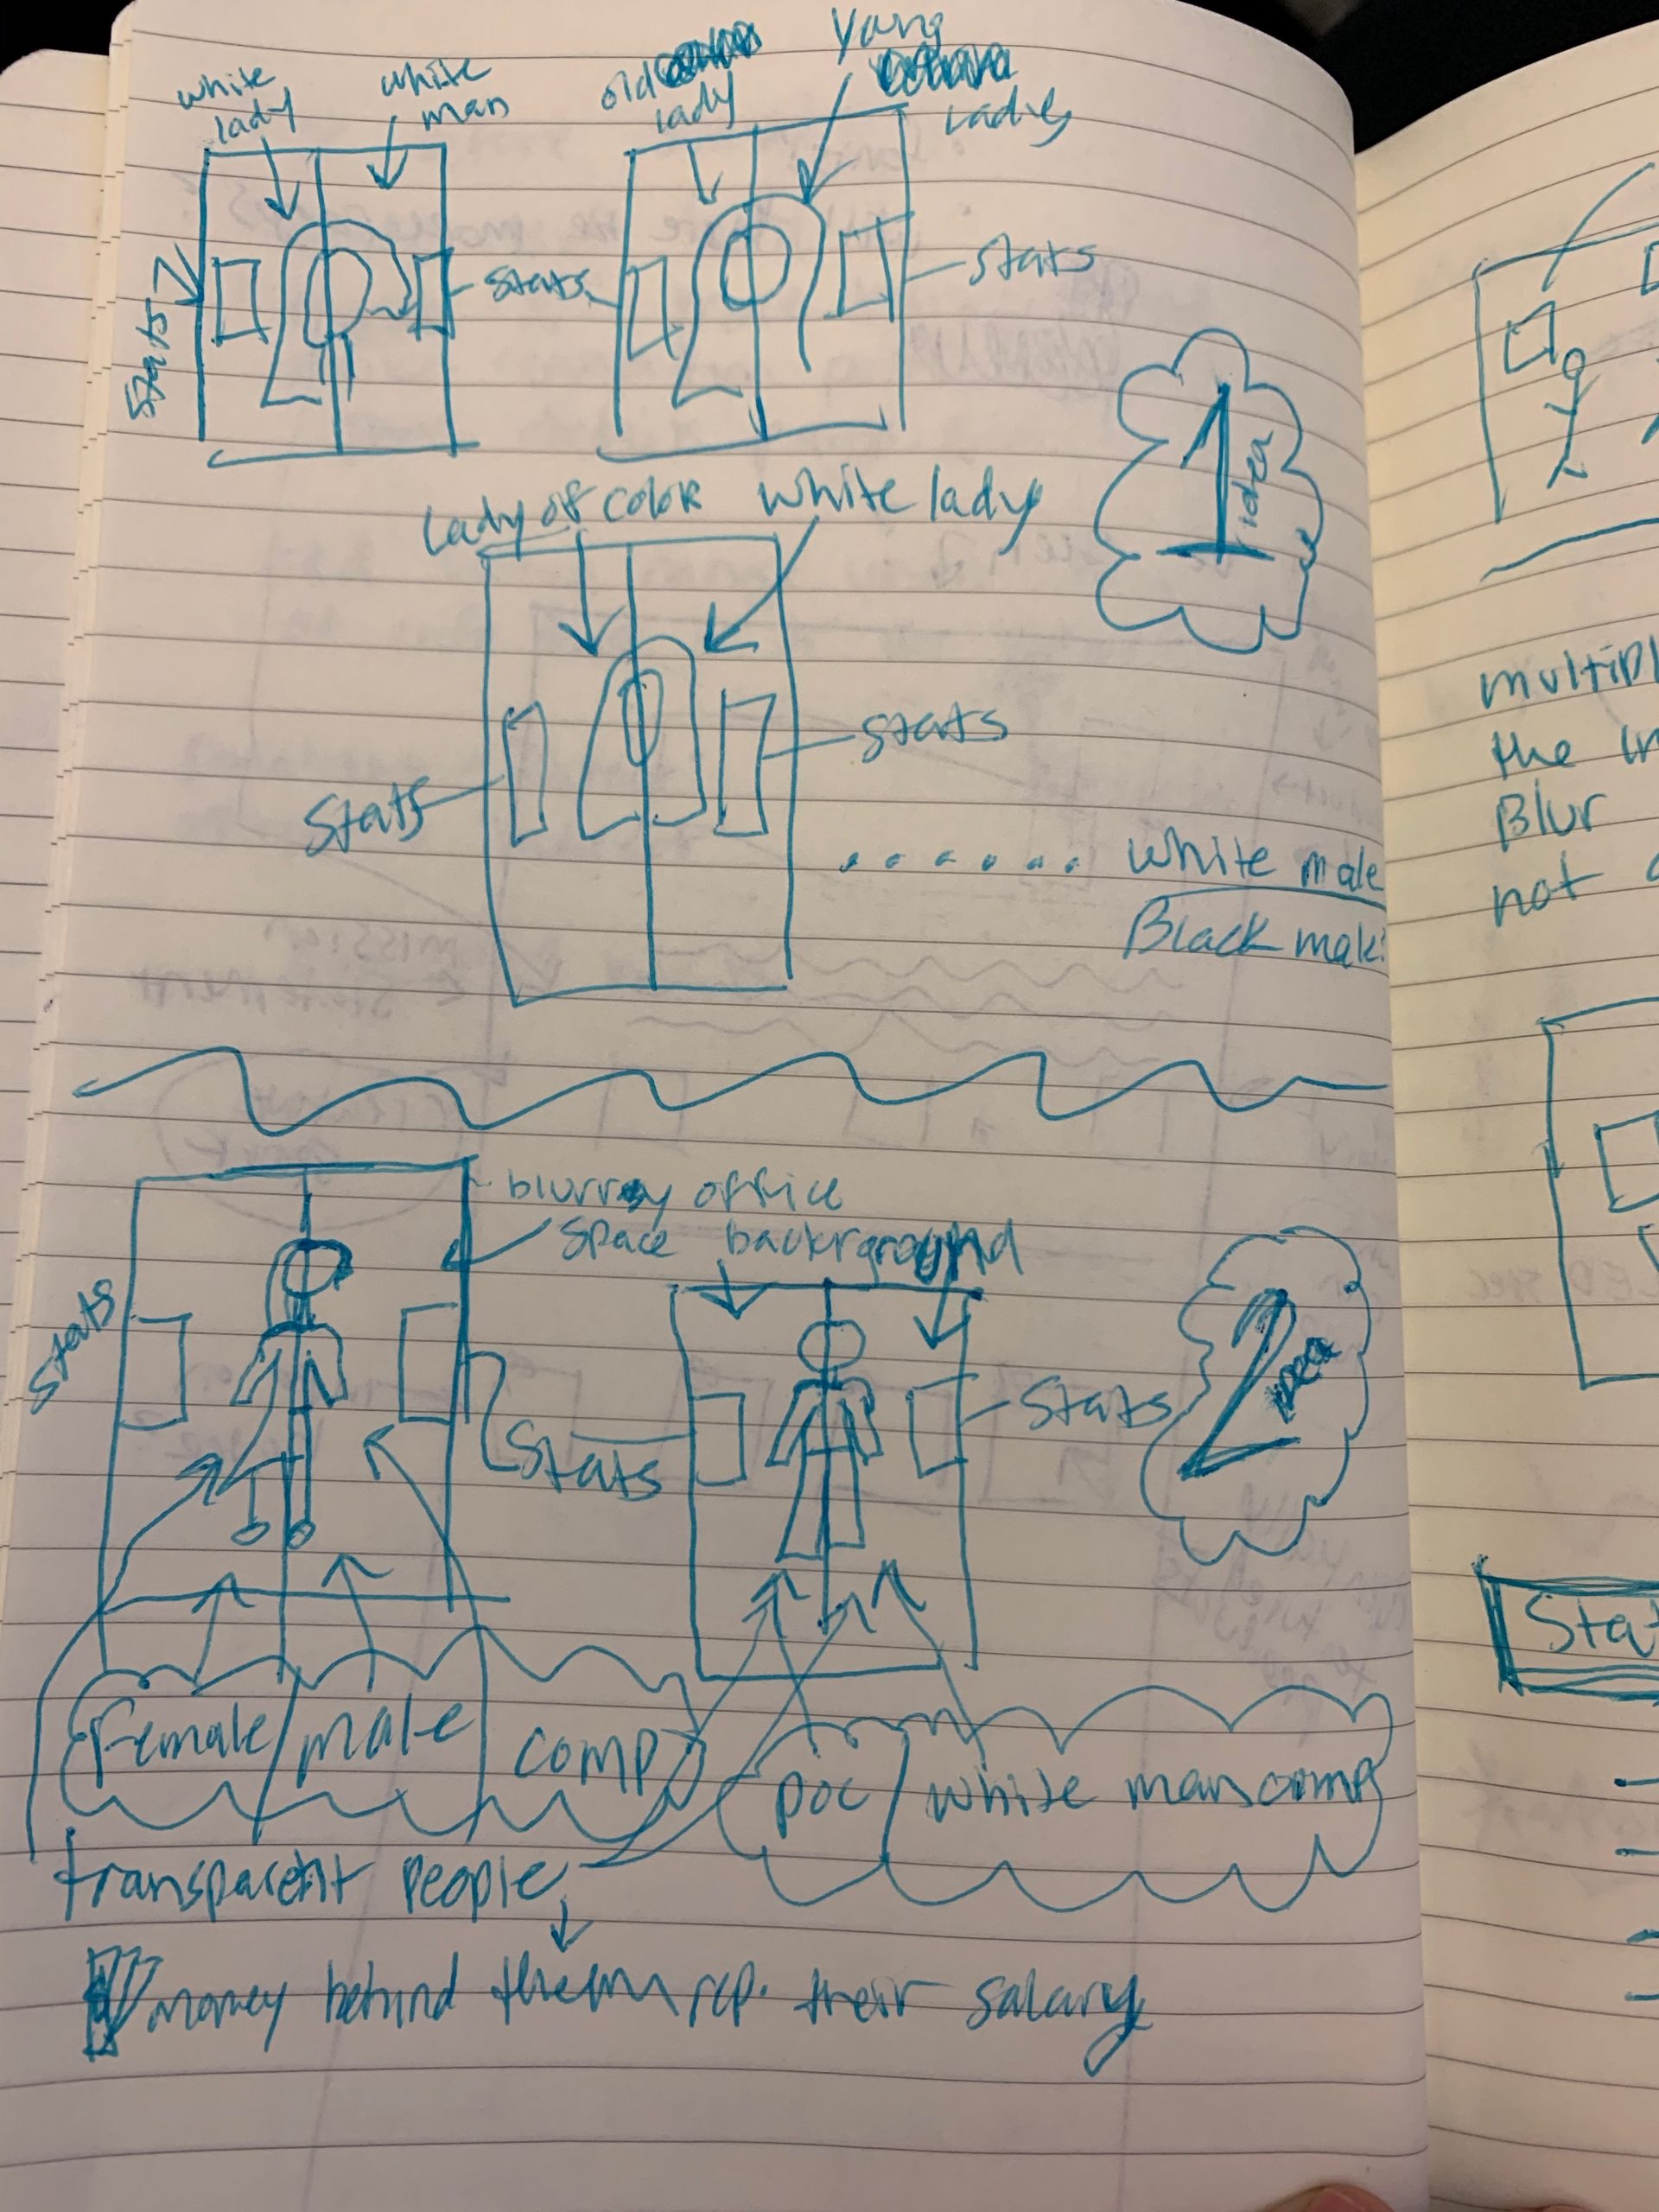 white lady
white man
old lady
Yong Ladies
Stats
Stats
Stats
1 idea
Lady of color
white lady
Stats
Stats
...... white male
Black male
blurry office
space background
Stats
Stats
Stats
2 idea
Female / male comp
poc / white man comp
transparent people
money behind them rep. their salary
multipl
the in
Blur
not
Stat